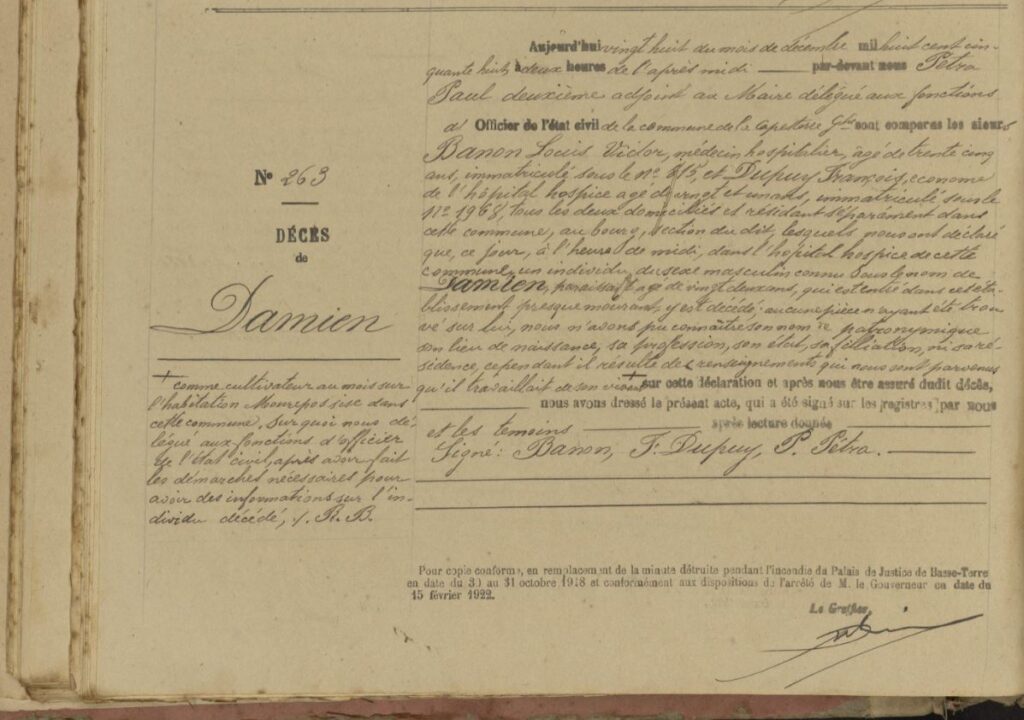 Nº 263
DÉCÈS
de
Damien
+ comme cultivateur au mois sur
l'habitation Monrepos sise dans
cette commune. Sur quoi nous dé-
légué aux fonctions d'officier
de l'état civil, après avoir fait
les démarches nécessaires pour
avoir des informations sur l'in-
dividu décédé, /. R. B.
Aujourd'hui vingt huit du mois de décembre mil huit cent cin-
quante huit, à deux heures de l'après midi — par-devant nous Pétra
Paul deuxième adjoint au Maire délégué aux fonctions
d' Officier de l'état civil de la commune de la Capesterre Gbe sont comparus les sieurs
Banon Louis Victor, médecin hospitalier, âgé de trente cinq
ans, immatriculé sous le nº 615, et Dupuy François, econome
de l'hôpital hospice agé de vingt et un ans, immatriculé sous le
Nº 1968, tous les deux domiciliés et résidant séparement dans
cette commune, au bourg, section du dit, lesquels nous ont déclaré
que, ce jour, à l'heure de midi, dans l'hopital hospice de cette
commune, un individu du sexe masculin connu sous le nom de
Damien, paraissant agé de vingt deux ans, qui est entré dans cet éta-
blissement presque mourant, y est décédé; aucune pièce n'ayant été trou
vé sur lui, nous n'avons pu connaître son nom patronymique
son lieu de naissance, sa profession, son état, sa filiation, ni sa ré-
sidence, cependant il résulte des renseignements qui nous sont parvenus
qu'il travaillait de son vivant + sur cette déclaration et après nous être assuré dudit décès,
nous avons dressé le présent acte, qui a été signé sur les registres par nous
après lecture donnée
et les temoins
Signé: Banon, F. Dupuy, P. Pétra.
Pour copie conforme, en remplacement de la minute détruite pendant l'incendie du Palais de Justice de Basse-Terre
en date du 30 au 31 octobre 1918 et conformément aux dispositions de l'arrêté de M. le Gouverneur en date du
15 février 1922.
Le Greffier,